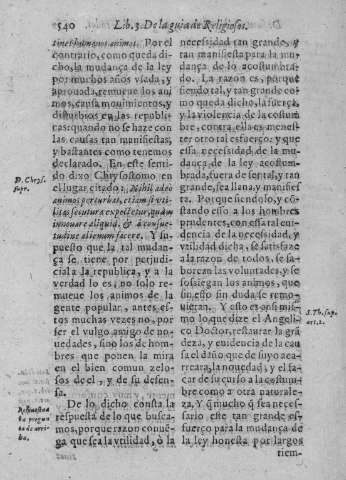 540 Lib. 3. De la guia de Religiosos.
tines humanos animos. Por el
contrario, como queda di-
cho, la mudança de la ley
por muchos años vsada, y
aprouada, remueue los ani
mos, causa mouimientos, y
disturbios en las republi
cas: quando no se haze con
las causas tan manifiestas,
y bastantes como tenemos
declarado. En este senti-
do dixo Chrysostomo en
el lugar citado: Nihil adeo
animos perturbat, etiam si vti-
litas secutura expectetur, quàm
innouare aliquid, & à consue-
tudine alienum facere. Y su-
puesto que la tal mudan-
ça se tiene por perjudi-
cial a la republica, y a la
verdad lo es, no solo re-
mueue los animos de la
gente popular, antes es-
tos muchas vezes no, por
ser el vulgo amigo de no-
uedades, sino los de hom-
bres que ponen la mira
en el bien comun zelo-
sos de el, y de su defen-
sa.
De lo dicho consta la
respuesta de lo que busca-
mos, porque razon conue-
ga que sea la vtilidad, ò la
D. Chrys.
supr.
Respuesta a
la pregun
ta de arri-
ba.
necessidad tan grande, y
tan manifiesta para la mu-
dança de lo acostumbra-
do. La razon es, porque
siendo tal, y tan grande co-
mo queda dicho, la fuerça,
y la violencia de la costum
bre, contra ella es menes-
ter otro tal esfuerço: y que
essa necessidad de la mu-
dança de la ley acostum-
brada, fuera de ser tal, y tan
grande, sea llana, y manifies
ta. Porque siendolo, y co-
stando esso a los hombres
prudentes, con esta tal eui-
dencia de la necessidad, y
vtilidad dicha, se satisfaze
a la razon de todos, se sa-
borean las voluntades, y se
sossiegan los animos, que
sin esto sin duda se remo-
uieran. Y esto es assi mis-
mo lo que dize el Angeli-
co Doctor, restaurar la gra
deza, y euidencia de la cau
sa el daño que de suyo aca-
rreara, la nouedad, y el sa-
car de su curso a la costum
bre como a otra naturale-
za, Y q̃ mucho q̃ sea neces-
sario este tan grande es-
fuerço para la mudança de
la ley honesta por largos
riem-
S. Th. sup.
art. 2.